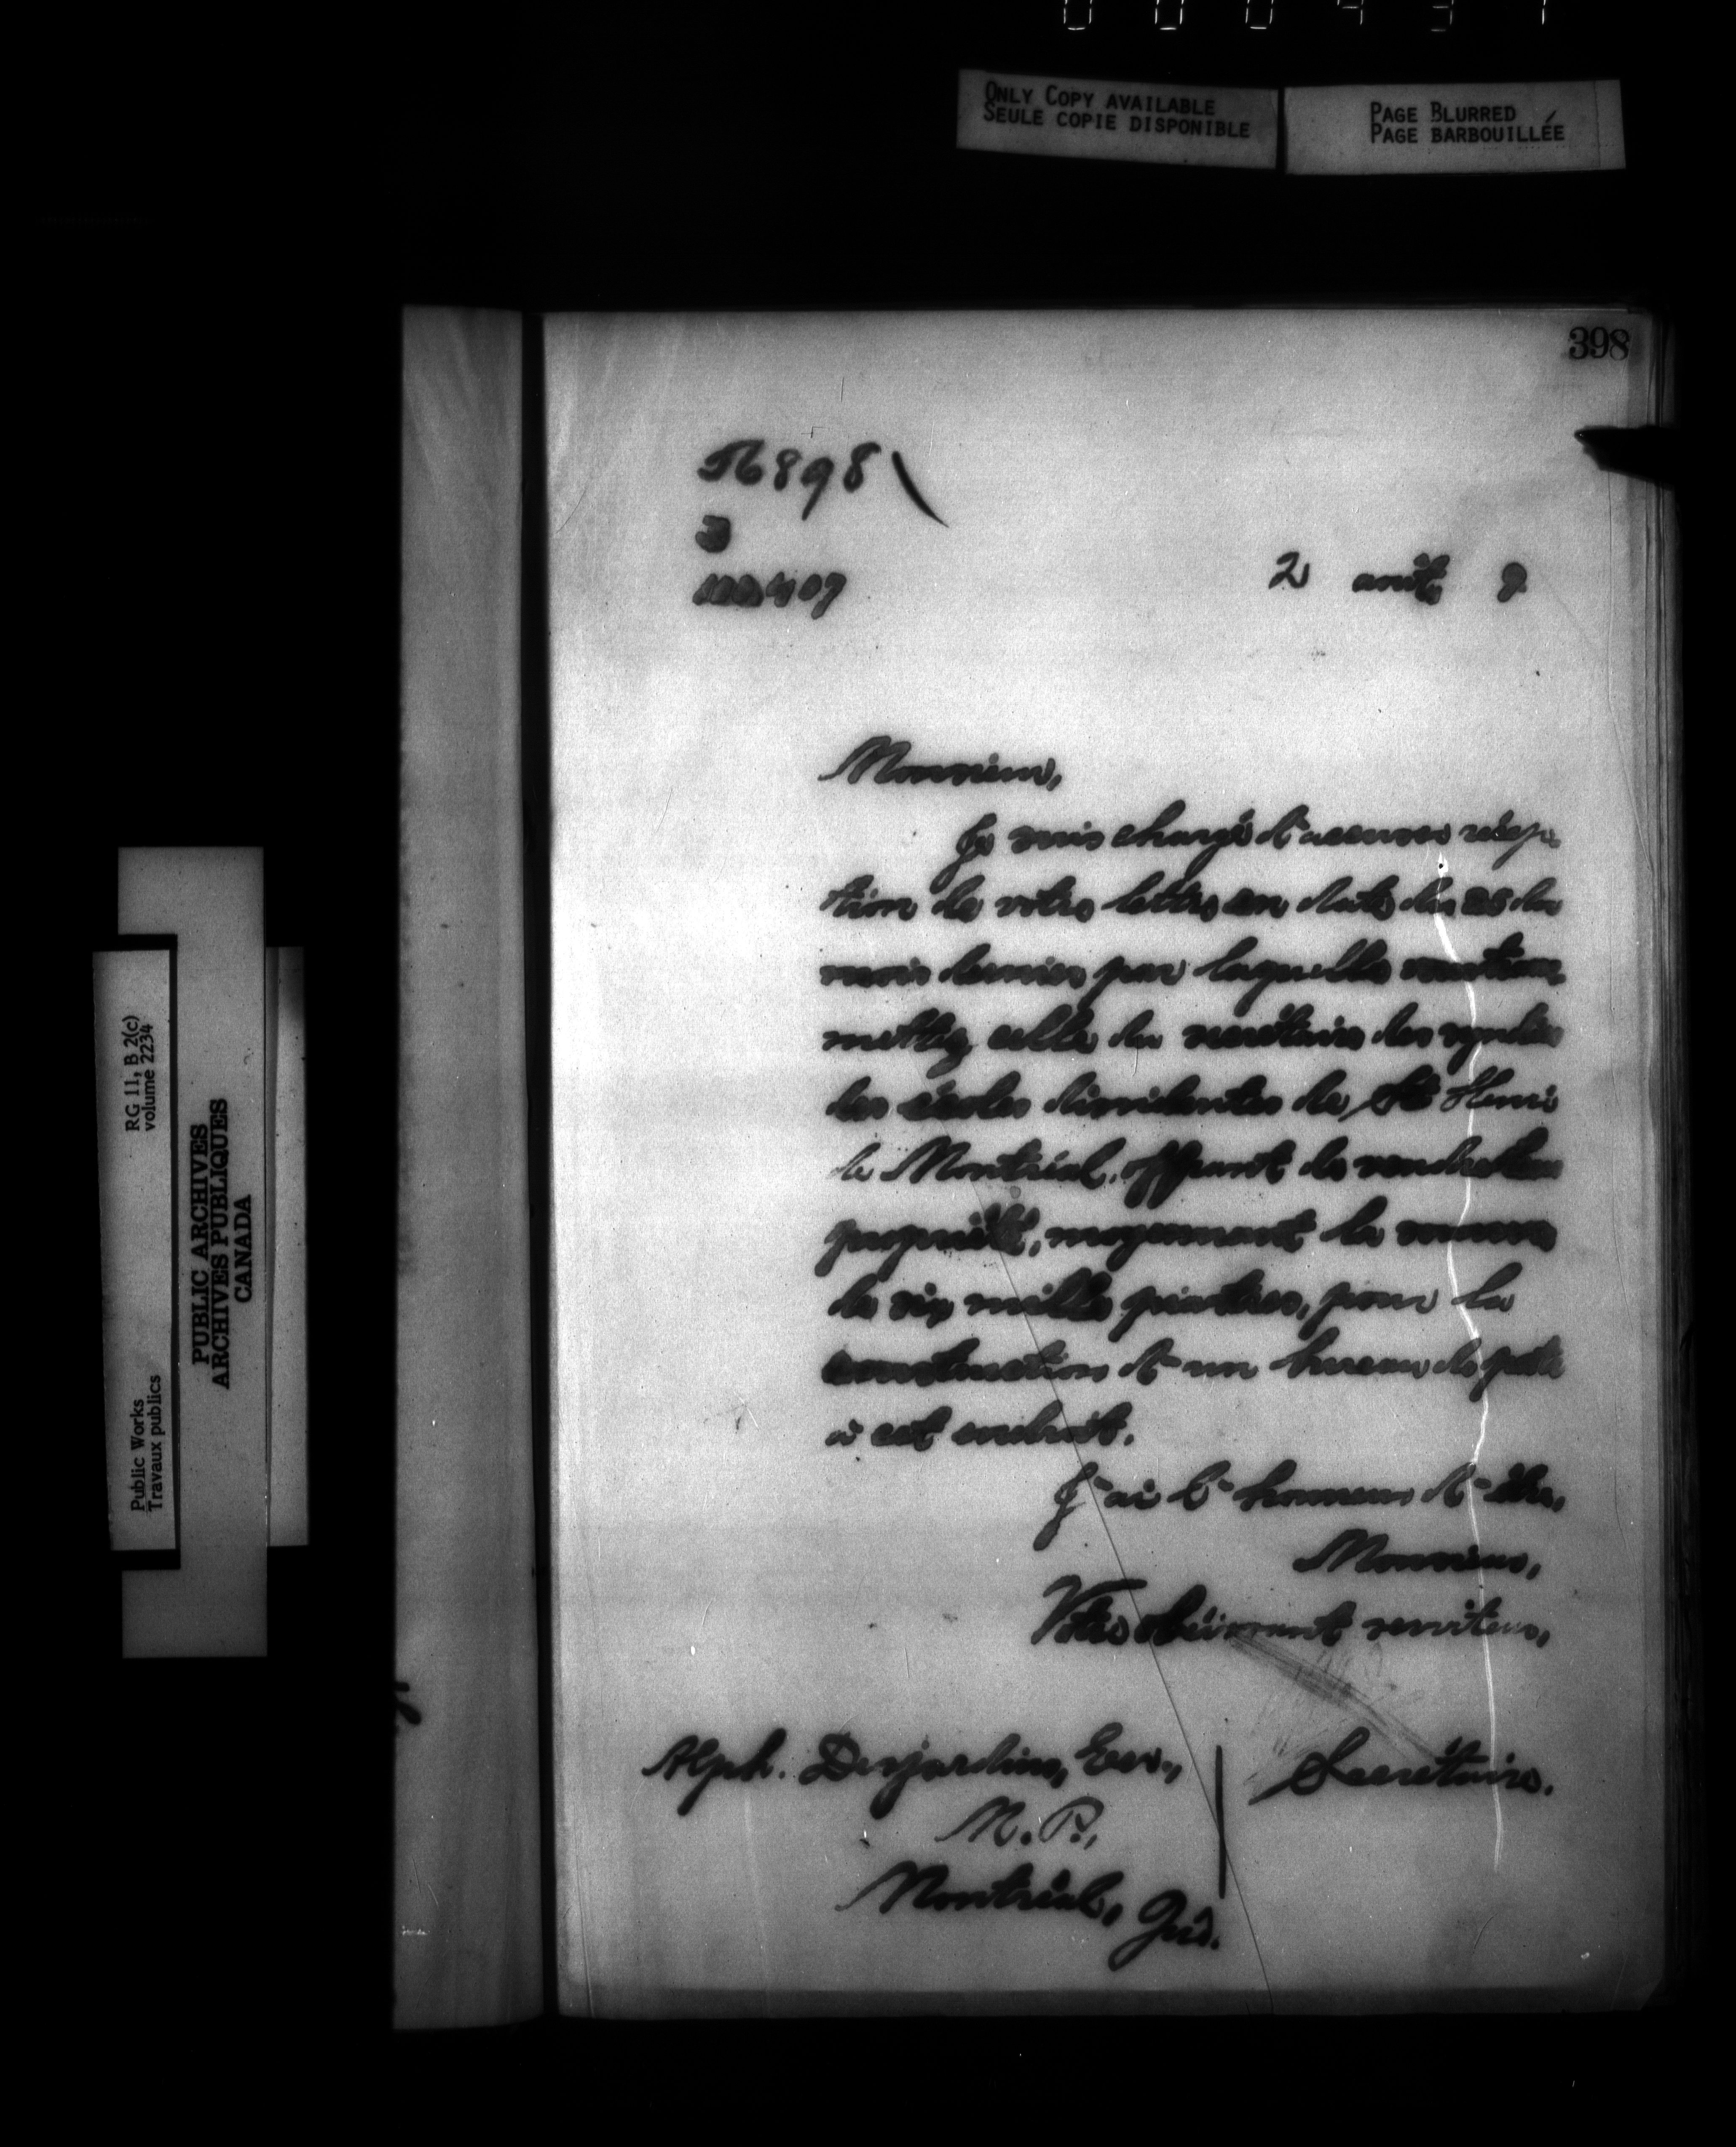 0 0 0 4 3 1
ONLY COPY AVAILABLE
SEULE COPIE DISPONIBLE
PAGE BLURRED
PAGE BARBOUILLÉE
398
2 août 9
Monsieur,
Je suis chargé d'accuser récep-
tion de votre lettre en date du 25 du
mois dernier par laquelle vous trans-
mettez celle du secrétaire des syndics
des écoles dissidentes de St Henri
de Montréal, offrant de vendre leur
propriété, moyennant la somme
de six mille piastres, pour la
construction d'un bureau de poste
à cet endroit.
J'ai l'honneur d'être,
Monsieur,
Votre obéissant serviteur,
Secrétaire.
Alph. Desjardins, Ecr.,
M.P.,
Montréal, Qué.
RG 11, B 2(c)
volume 2234
PUBLIC ARCHIVES
ARCHIVES PUBLIQUES
CANADA
Public Works
Travaux publics